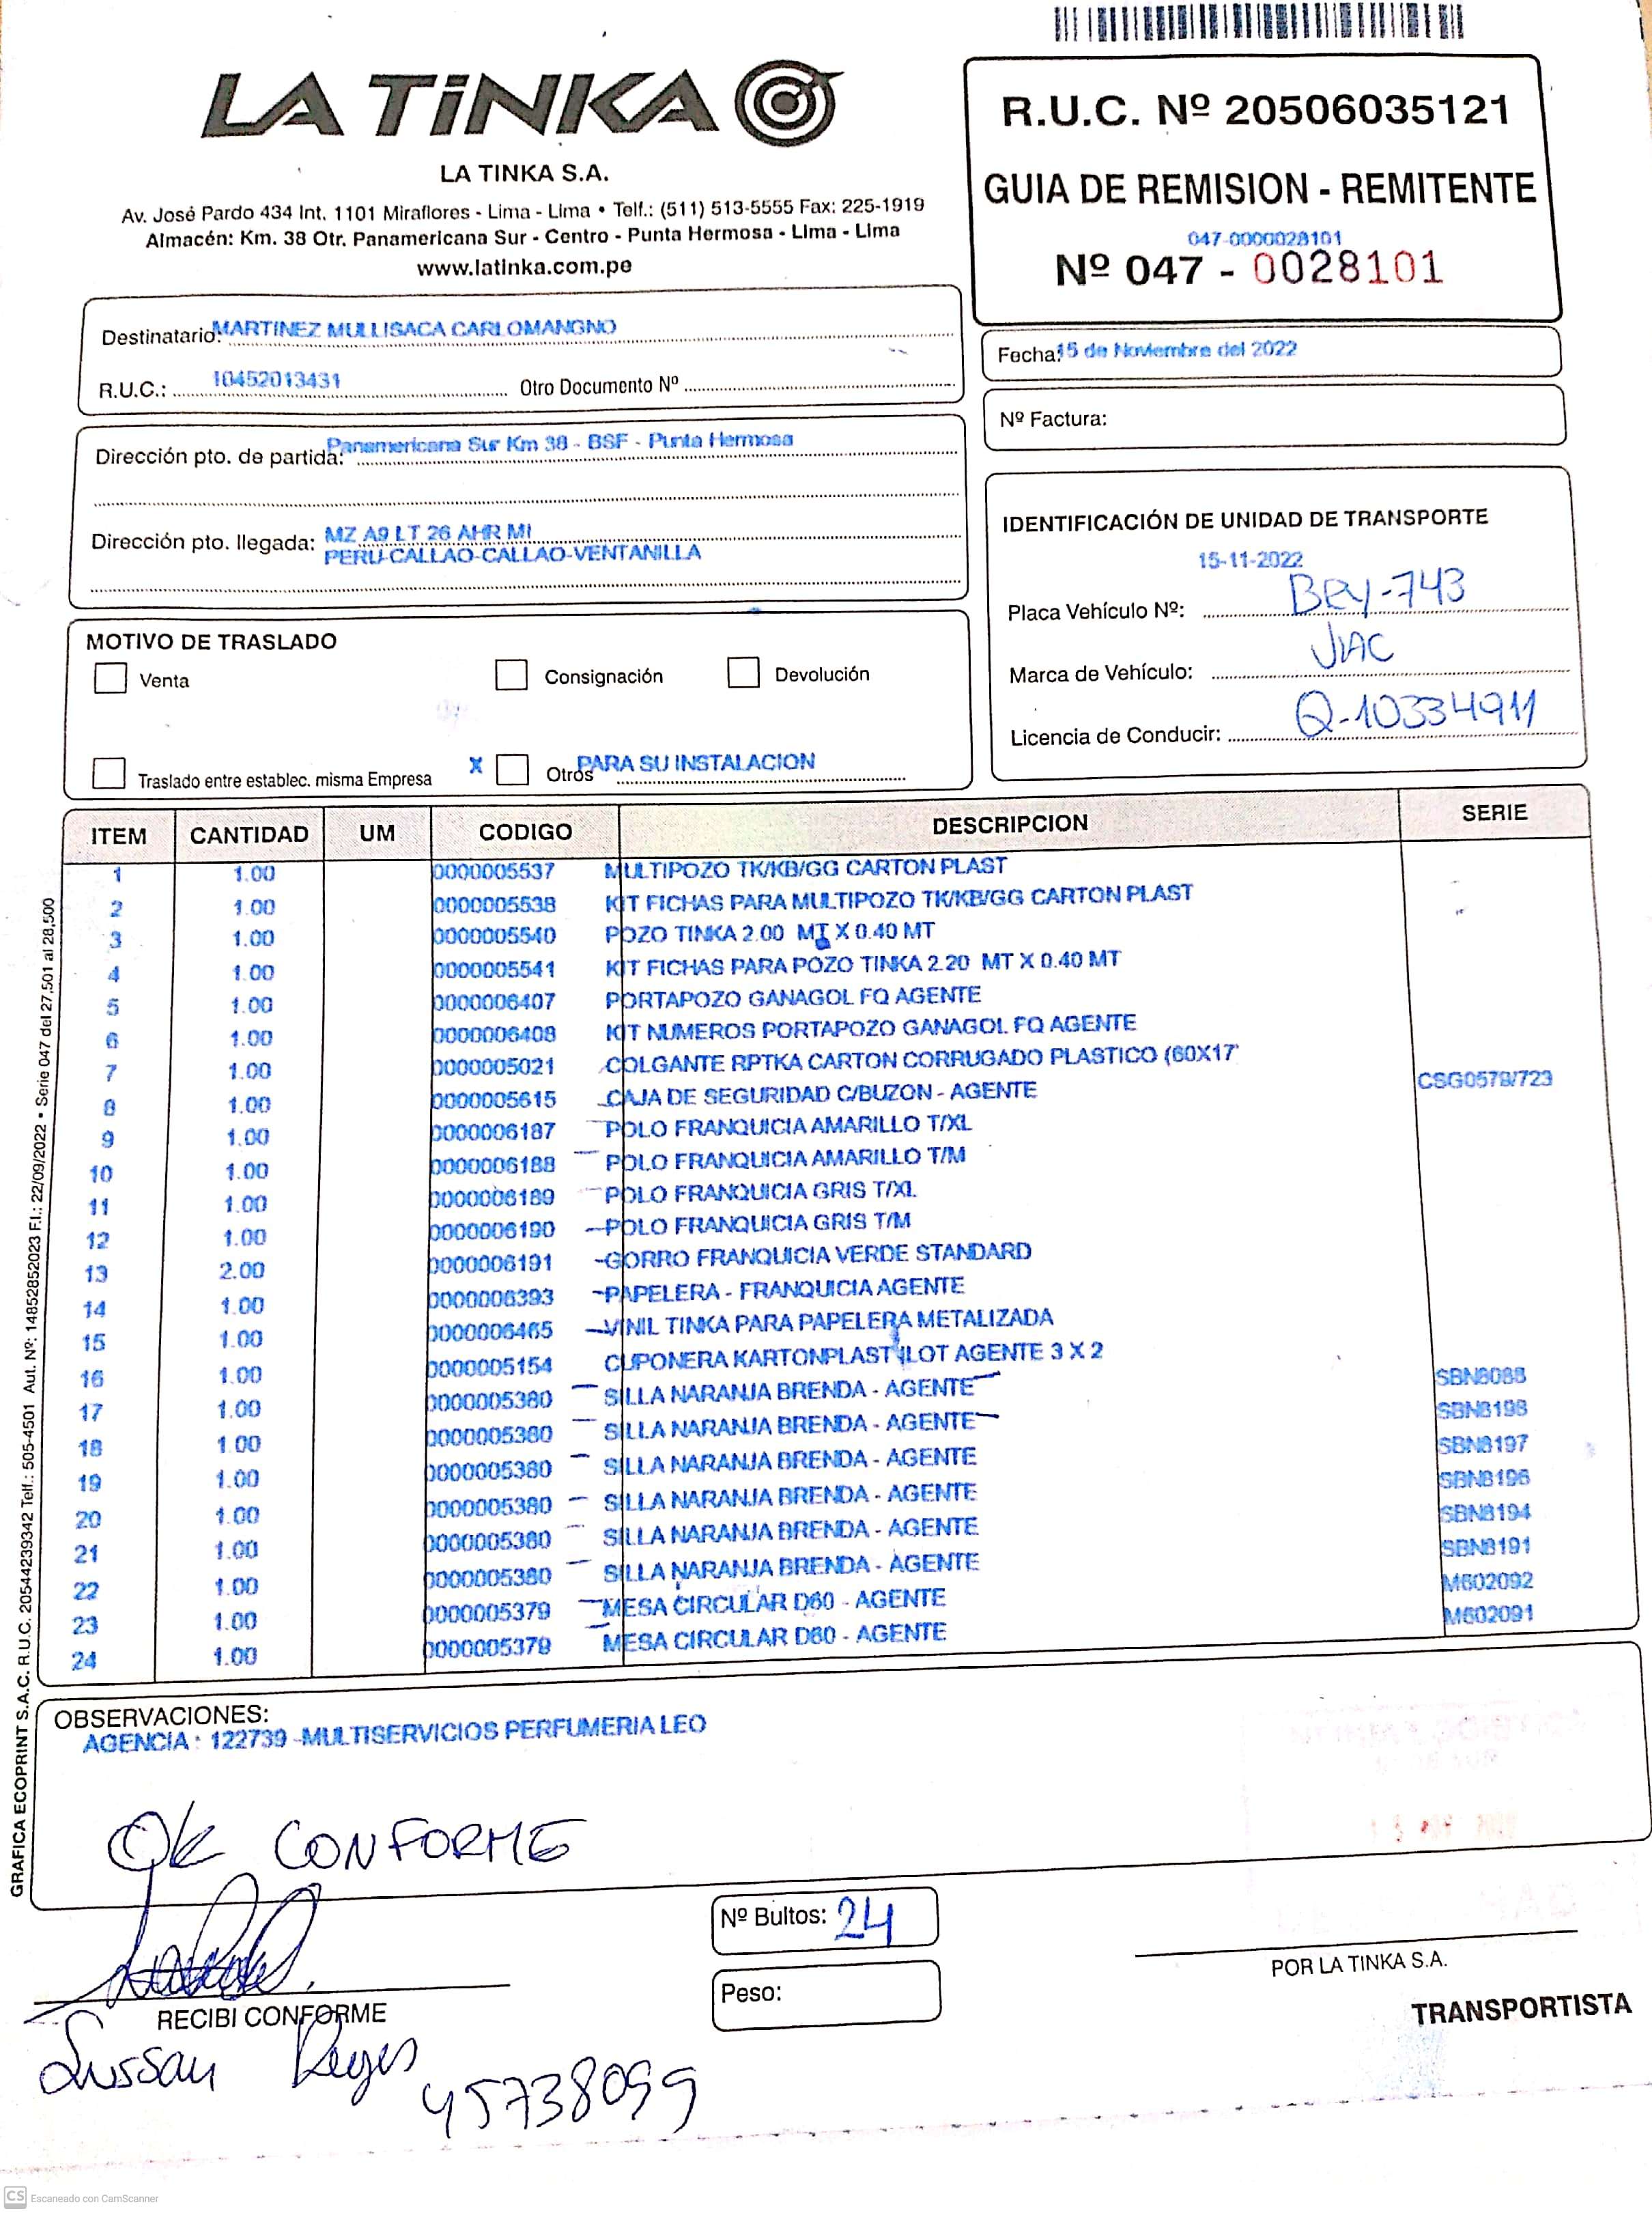 LA TiNKA
LA TINKA S.A.
Av. José Pardo 434 Int. 1101 Miraflores - Lima - Lima • Telf.: (511) 513-5555 Fax: 225-1919
Almacén: Km. 38 Otr. Panamericana Sur - Centro - Punta Hermosa - Lima - Lima
www.latinka.com.pe
R.U.C. Nº 20506035121
GUIA DE REMISION - REMITENTE
047-0000028101
Nº 047 - 0028101
Destinatario: MARTINEZ MULLISACA CARLOMANGNO
R.U.C.: 10452013431 Otro Documento Nº
Fecha: 15 de Noviembre del 2022
Nº Factura:
Dirección pto. de partida: Panamericana Sur Km 38 - BSF - Punta Hermosa
Dirección pto. llegada: MZ A9 LT 26 AHR MI
PERU-CALLAO-CALLAO-VENTANILLA
IDENTIFICACIÓN DE UNIDAD DE TRANSPORTE
15-11-2022
Placa Vehículo Nº: BEY-743
Marca de Vehículo: JAC
Licencia de Conducir: Q-10334911
MOTIVO DE TRASLADO
Venta Consignación Devolución
Traslado entre establec. misma Empresa X Otros PARA SU INSTALACION
ITEM CANTIDAD UM CODIGO DESCRIPCION SERIE
1 1.00 0000005537 MULTIPOZO TK/KB/GG CARTON PLAST
2 1.00 0000005538 KIT FICHAS PARA MULTIPOZO TK/KB/GG CARTON PLAST
3 1.00 0000005540 POZO TINKA 2.00 MT X 0.40 MT
4 1.00 0000005541 KIT FICHAS PARA POZO TINKA 2.20 MT X 0.40 MT
5 1.00 0000006407 PORTAPOZO GANAGOL FQ AGENTE
6 1.00 0000006408 KIT NUMEROS PORTAPOZO GANAGOL FQ AGENTE
7 1.00 0000005021 COLGANTE RPTKA CARTON CORRUGADO PLASTICO (60X17
8 1.00 0000005615 CAJA DE SEGURIDAD C/BUZON - AGENTE CSG0579/723
9 1.00 0000006187 POLO FRANQUICIA AMARILLO T/XL
10 1.00 0000006188 POLO FRANQUICIA AMARILLO T/M
11 1.00 0000006189 POLO FRANQUICIA GRIS T/XL
12 1.00 0000006190 POLO FRANQUICIA GRIS T/M
13 2.00 0000006191 GORRO FRANQUICIA VERDE STANDARD
14 1.00 0000006393 PAPELERA - FRANQUICIA AGENTE
15 1.00 0000006465 VINIL TINKA PARA PAPELERA METALIZADA
16 1.00 0000005154 CUPONERA KARTONPLAST ILOT AGENTE 3 X 2
17 1.00 0000005380 SILLA NARANJA BRENDA - AGENTE SBN8088
18 1.00 0000005380 SILLA NARANJA BRENDA - AGENTE SBN8198
19 1.00 0000005380 SILLA NARANJA BRENDA - AGENTE SBN8197
20 1.00 0000005380 SILLA NARANJA BRENDA - AGENTE SBN8196
21 1.00 0000005380 SILLA NARANJA BRENDA - AGENTE SBN8194
22 1.00 0000005380 SILLA NARANJA BRENDA - AGENTE SBN8191
23 1.00 0000005379 MESA CIRCULAR D60 - AGENTE M602092
24 1.00 0000005379 MESA CIRCULAR D60 - AGENTE M602091
GRAFICA ECOPRINT S.A.C. R.U.C. 20544239342 Telf.: 505-4501 Aut. Nº: 1485285202​3 F.I.: 22/09/2022 • Serie 047 del 27,501 al 28,500
OBSERVACIONES:
AGENCIA : 122739 -MULTISERVICIOS PERFUMERIA LEO
OK CONFORME
Nº Bultos: 24
Peso:
RECIBI CONFORME
POR LA TINKA S.A.
TRANSPORTISTA
Sussan Reyes
45738099
CS Escaneado con CamScanner